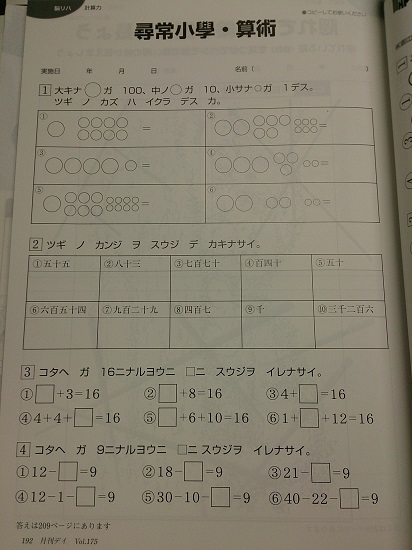 脳リハ 計算力
●コピーしてお使いください
尋常小學・算術
実施日 年 月 日 名前（
1 大キナ○ガ 100、中ノ○ガ 10、小サナ○ガ 1デス。
ツギ ノ カズ ハ イクラ デス カ。
① = ② =
③ = ④ =
⑤ = ⑥ =
2 ツギ ノ カンジ ヲ スウジ デ カキナサイ。
①五十五 ②八十三 ③七百七十 ④百四十 ⑤五十
⑥六百五十四 ⑦九百二十九 ⑧四百七 ⑨千 ⑩三千二百六
3 コタヘ ガ 16ニナルヨウニ □ニ スウジヲ イレナサイ。
①□+3=16 ②□+8=16 ③4+□=16
④4+4+□=16 ⑤□+6+10=16 ⑥1+□+12=16
4 コタヘ ガ 9ニナルヨウニ □ニ スウジヲ イレナサイ。
①12−□=9 ②18−□=9 ③21−□=9
④12−1−□=9 ⑤30−10−□=9 ⑥40−22−□=9
答えは209ページにあります
192 月刊デイ Vol.175